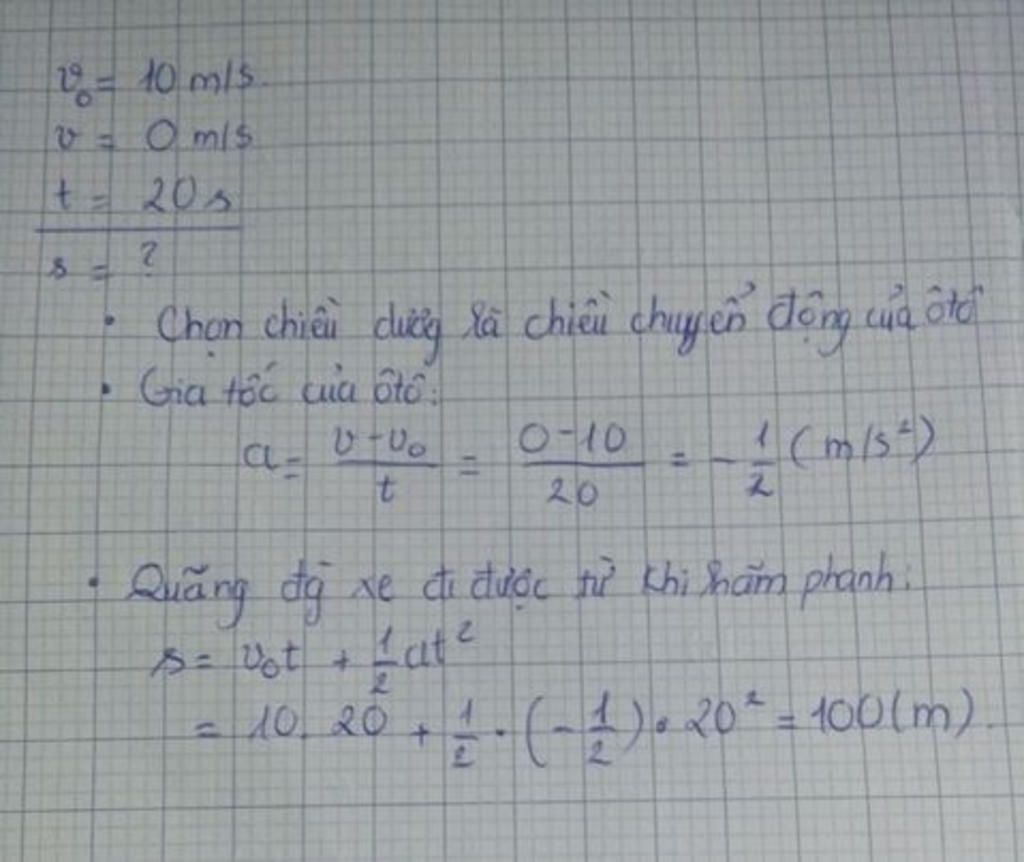 v₀ = 10 m/s
v = 0 m/s
t = 20 s
s = ?
• Chọn chiều dương là chiều chuyển động của ôtô
• Gia tốc của ôtô:
a = \frac{v - v₀}{t} = \frac{0 - 10}{20} = - \frac{1}{2} (m/s²)
• Quãng đg xe đi được từ khi hãm phanh:
s = v₀t + \frac{1}{2} at²
= 10. 20 + \frac{1}{2} . (- \frac{1}{2}) . 20² = 100 (m).